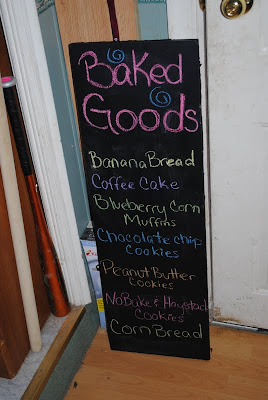 Baked
Goods
Banana Bread
Coffee Cake
Blueberry Corn
Muffins
Chocolate chip
Cookies
Peanut Butter
Cookies
No Bake & Haystack
Cookies
Corn Bread